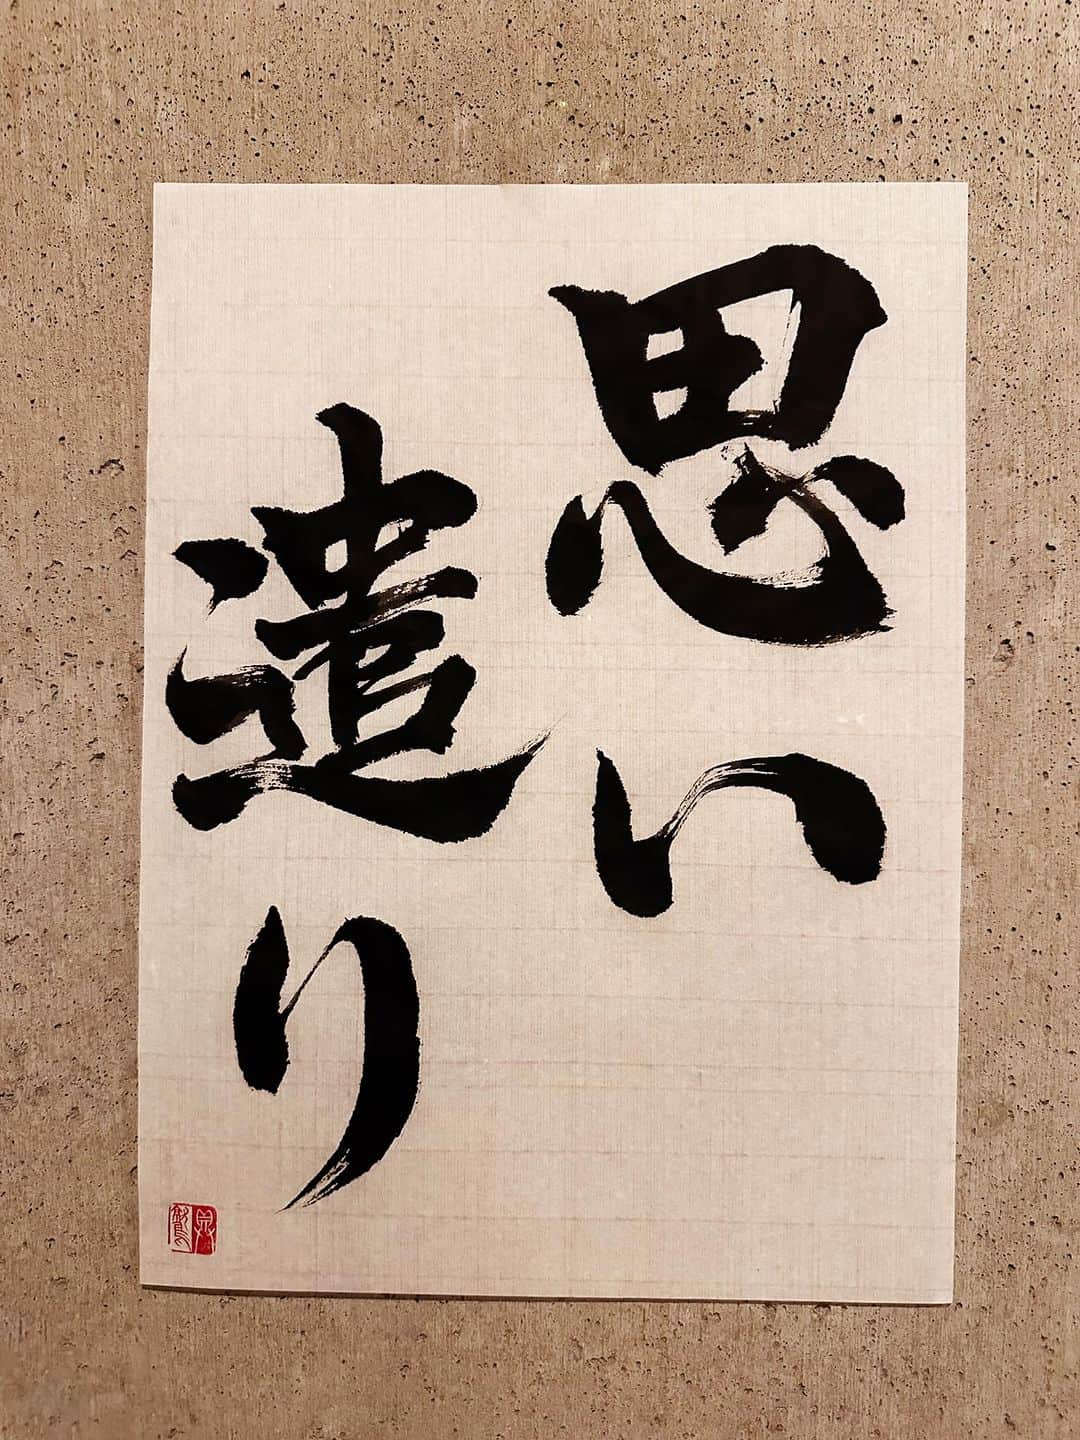 思い
遣り